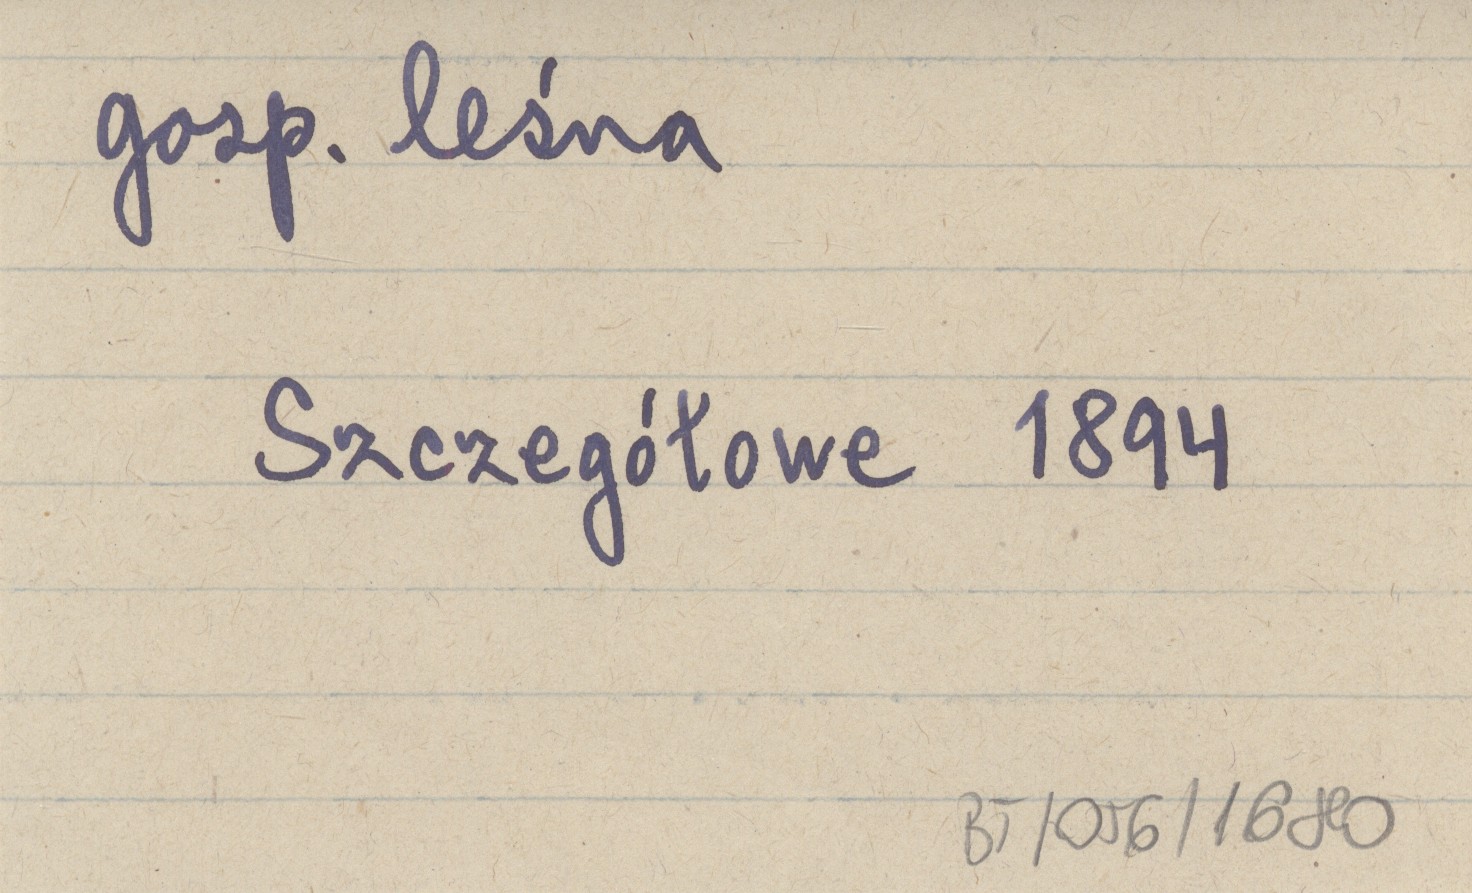 gosp. leśna
Szczegółowe 1894
BT/056/1680